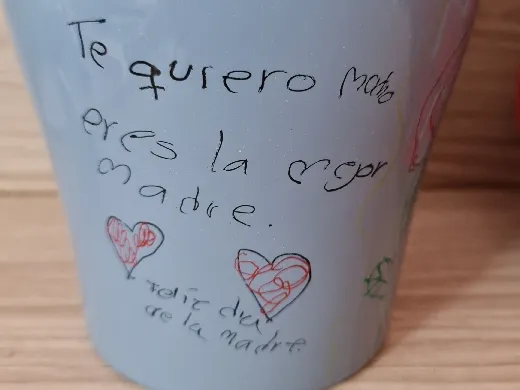 Te quiero mucho
eres la mejor
madre.
feliz dia
de la madre.